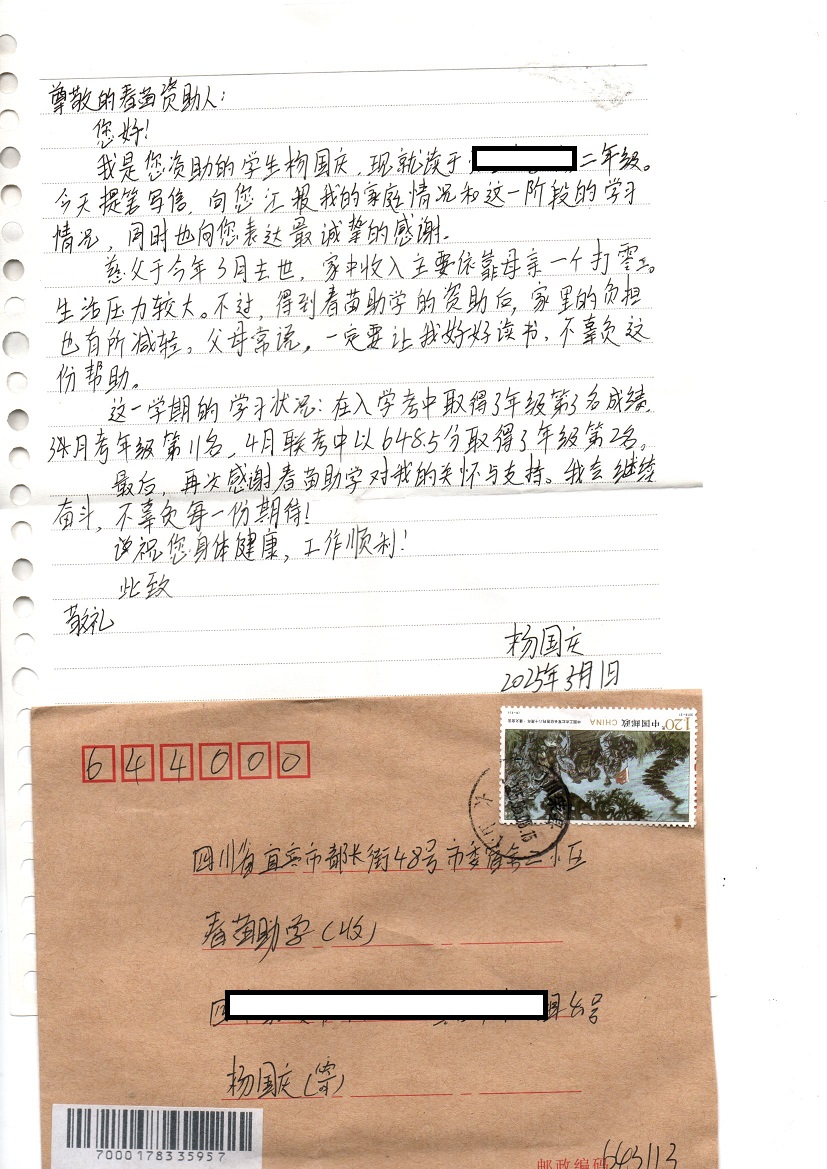 尊敬的春苗资助人：
您好！
我是您资助的学生杨国庆，现就读于 二年级。
今天提笔写信，向您汇报我的家庭情况和这一阶段的学习
情况，同时也向您表达最诚挚的感谢。
慈父于今年3月去世，家中收入主要依靠母亲一个打零工。
生活压力较大。不过，得到春苗助学的资助后，家里的负担
也有所减轻。父母常说，一定要让我好好读书，不辜负这
份帮助。
这一学期的学习状况：在入学考中取得了年级第3名成绩，
3月月考年级第11名，4月联考中以648.5分取得了年级第2名。
最后，再次感谢春苗助学对我的关怀与支持。我会继续
奋斗，不辜负每一份期待！
祝您身体健康，工作顺利！
此致
敬礼
杨国庆
2025年5月1日
中国邮政 CHINA 1.20
644000
四川省宜宾市都长街48号市委宿舍二小区
春苗助学（收）
号
杨国庆（寄）
7000178335957
邮政编码 643113